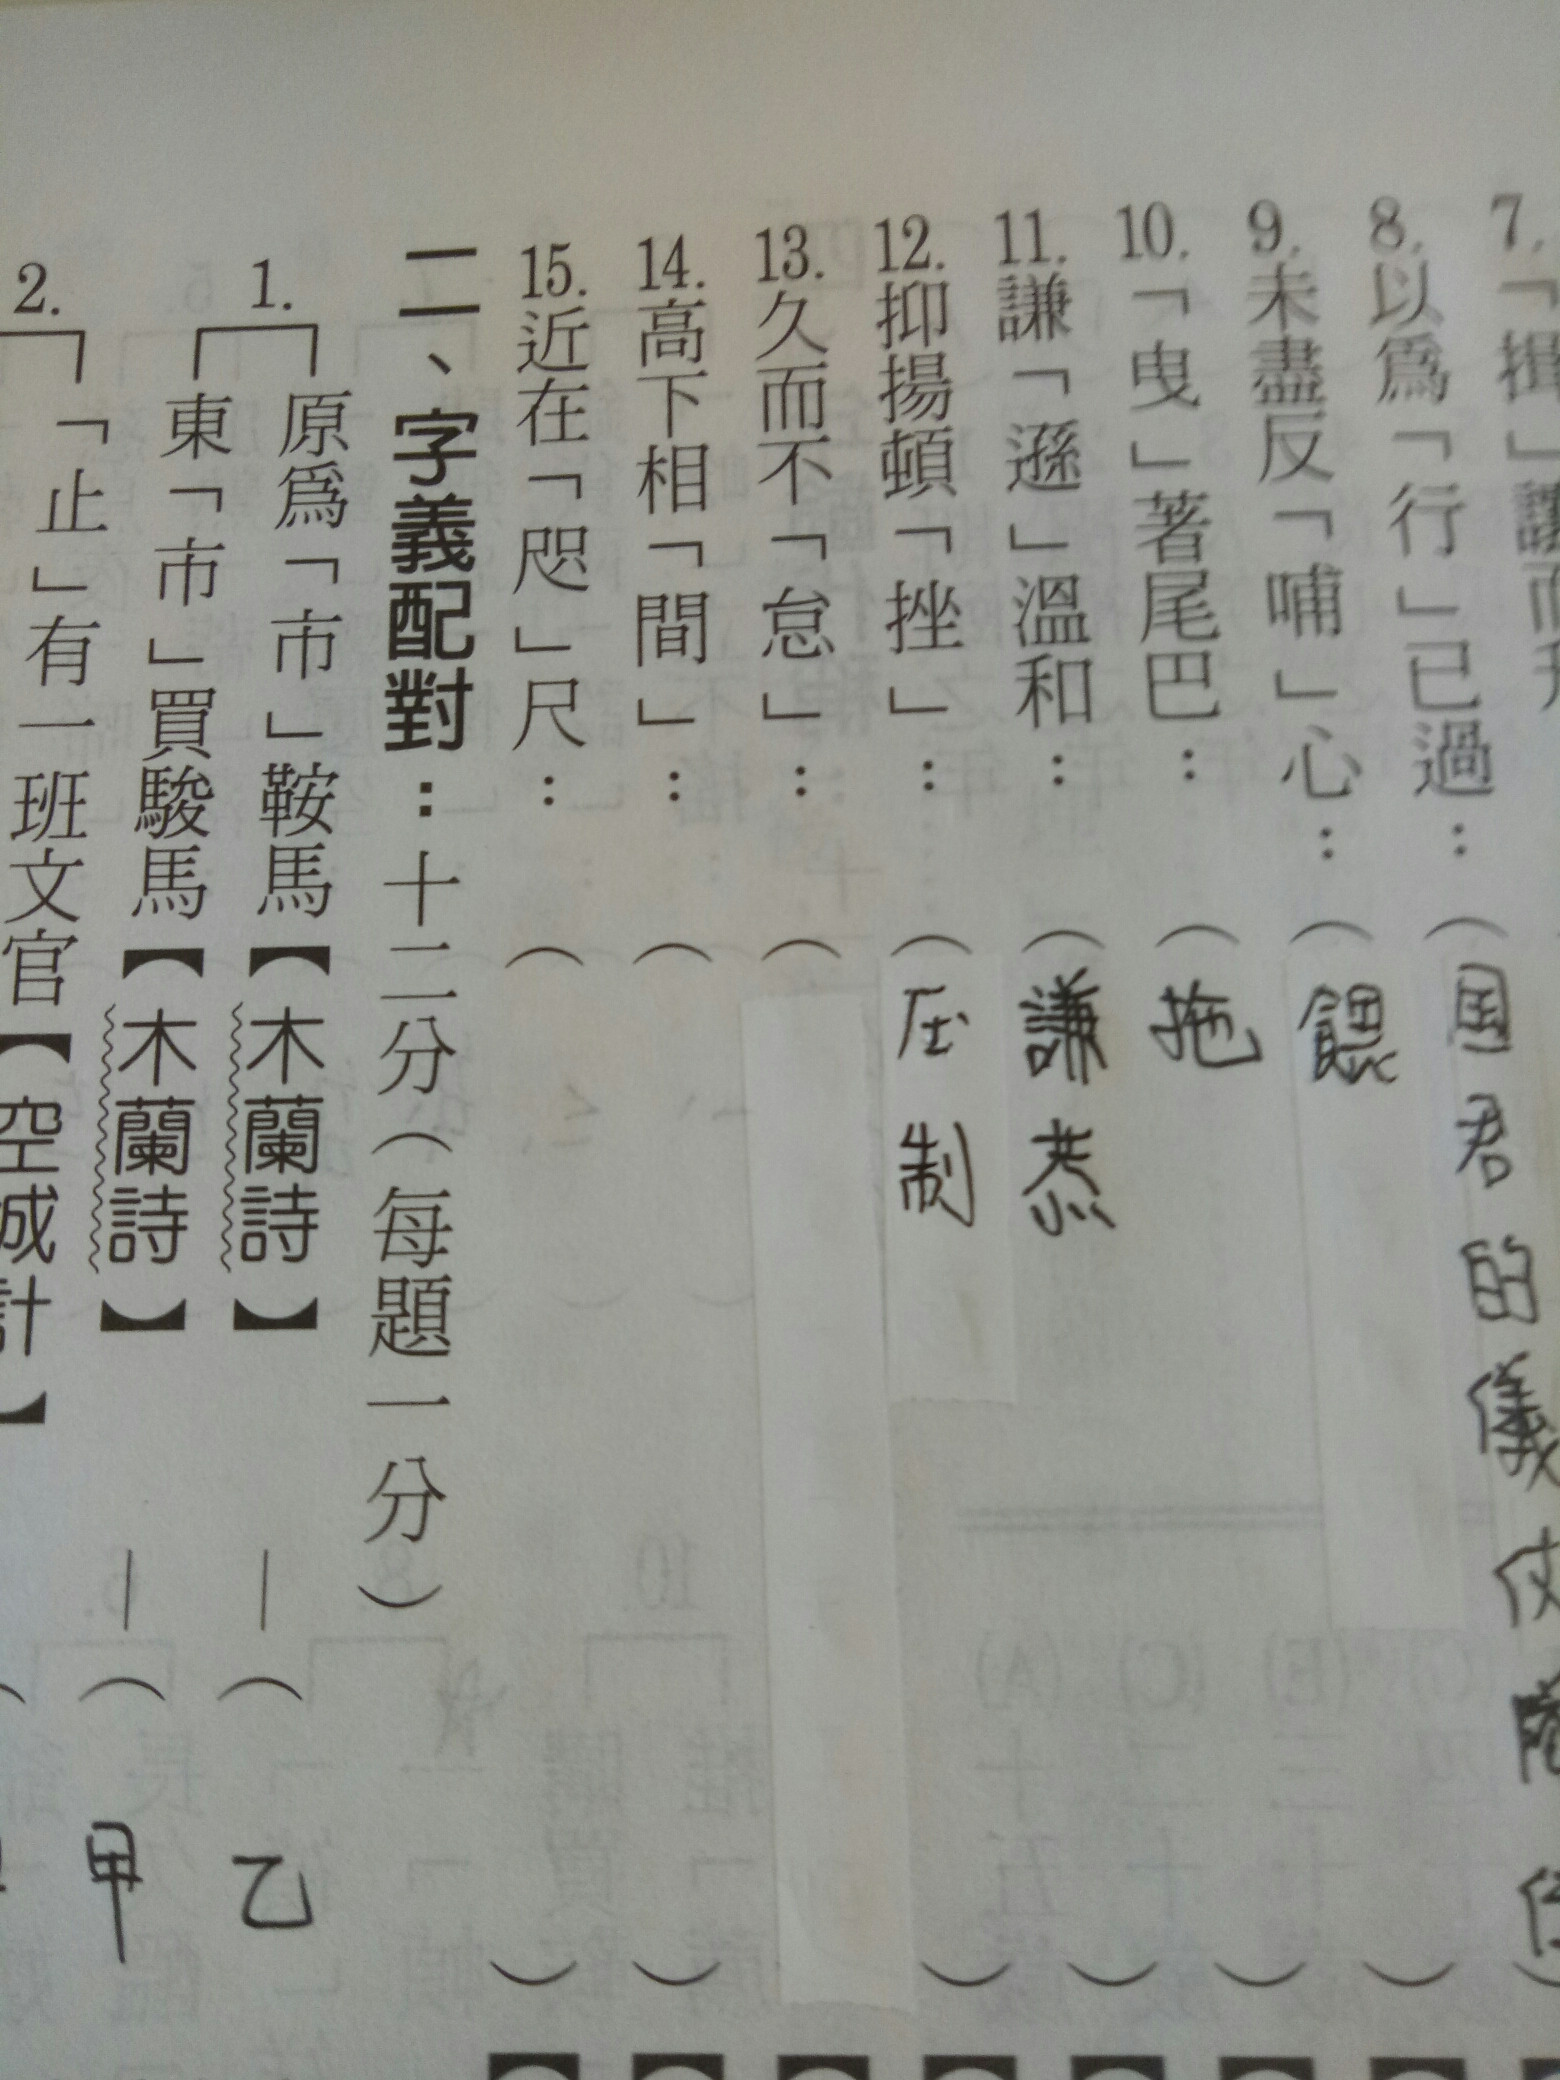 7.「揖」讓而升
8.以爲「行」已過：（国君的儀仗隊伍）
9.未盡反「哺」心：（餵）
10.「曳」著尾巴：（拖）
11.謙「遜」溫和：（謙恭）
12.抑揚頓「挫」：（压制）
13.久而不「怠」：（
14.高下相「間」：（）
15.近在「咫」尺：（）
二、字義配對：十二分（每題一分）
1.原爲「市」鞍馬【木蘭詩】—（乙
東「市」買駿馬【木蘭詩】—（甲
2.「止」有一班文官【空城計】